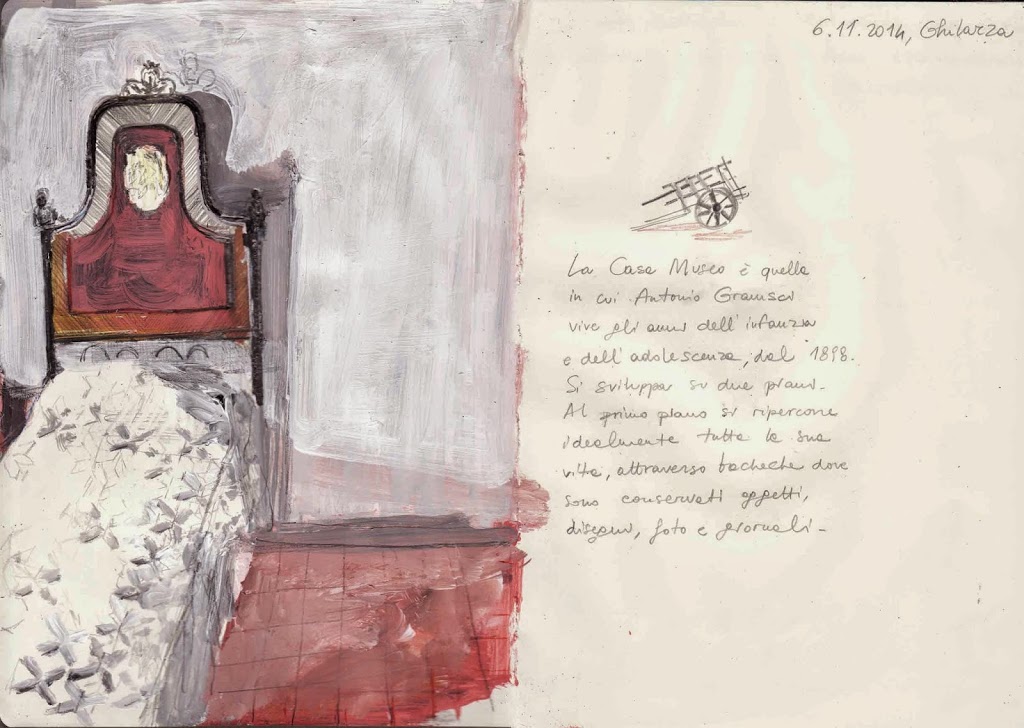 6.11.2014, Ghilarza
La Casa Museo è quella
in cui Antonio Gramsci
vive gli anni dell'infanzia
e dell'adolescenza, dal 1898.
Si sviluppa su due piani.
Al primo piano si ripercorre
idealmente tutta la sua
vita, attraverso bacheche dove
sono conservati oggetti,
disegni, foto e giornali.